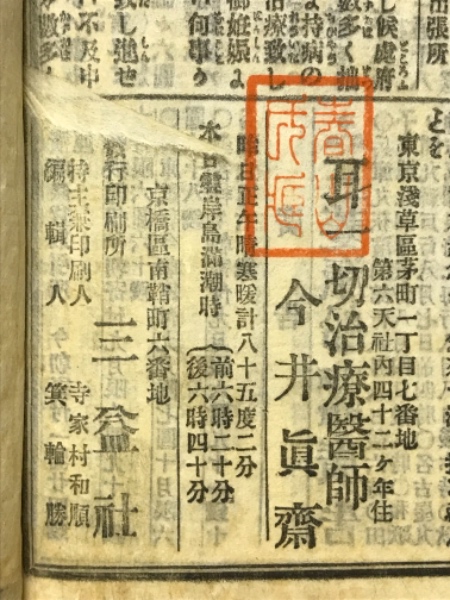 出張所
し候處府
數多く拙
よ持病の
治療致し
御姙娠よ
何事う
致し進せ
不及申
數多く
とを
東京淺草區茅町一丁目七番地
第六天社內四十二ケ年住
耳一切治療醫師
今井眞齋
昨日正午時寒暖計八十五度二分
本日靈岸島滿潮時
(前六時二十分
(後六時四十分
京橋區南鞘町六番地
發行印刷所 三益社
持主兼印刷人 寺家村和順
編輯人 箕輪勝